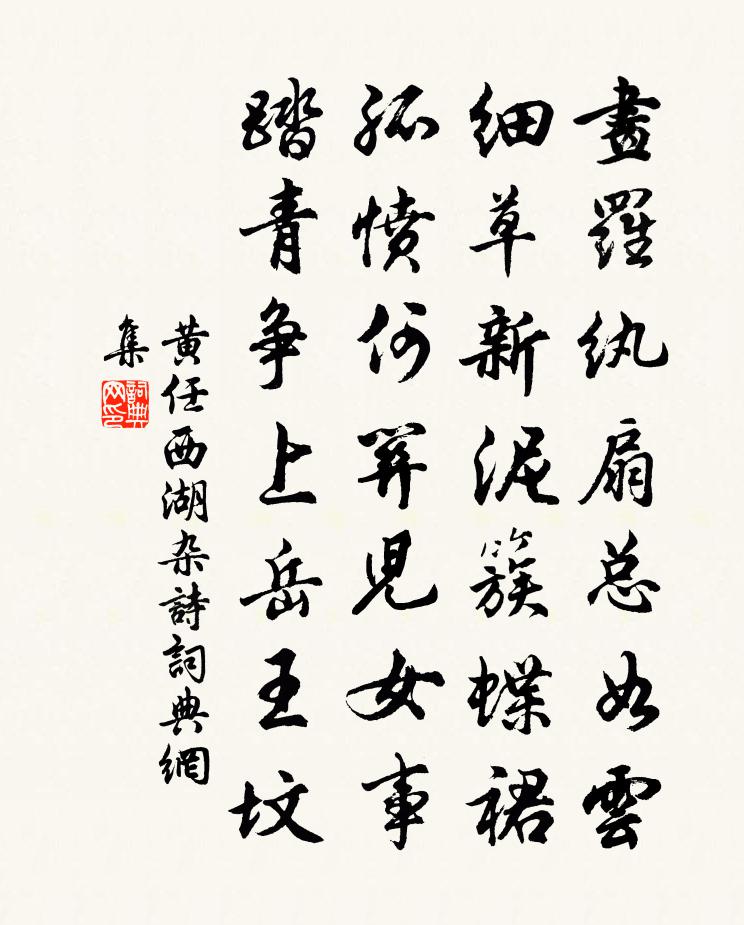 畫羅紈扇总如雲
細草新泥簇蝶裙
孤憤何關兒女事
踏青争上岳王坟
黄任西湖杂詩詞典網
集
詞典
网印